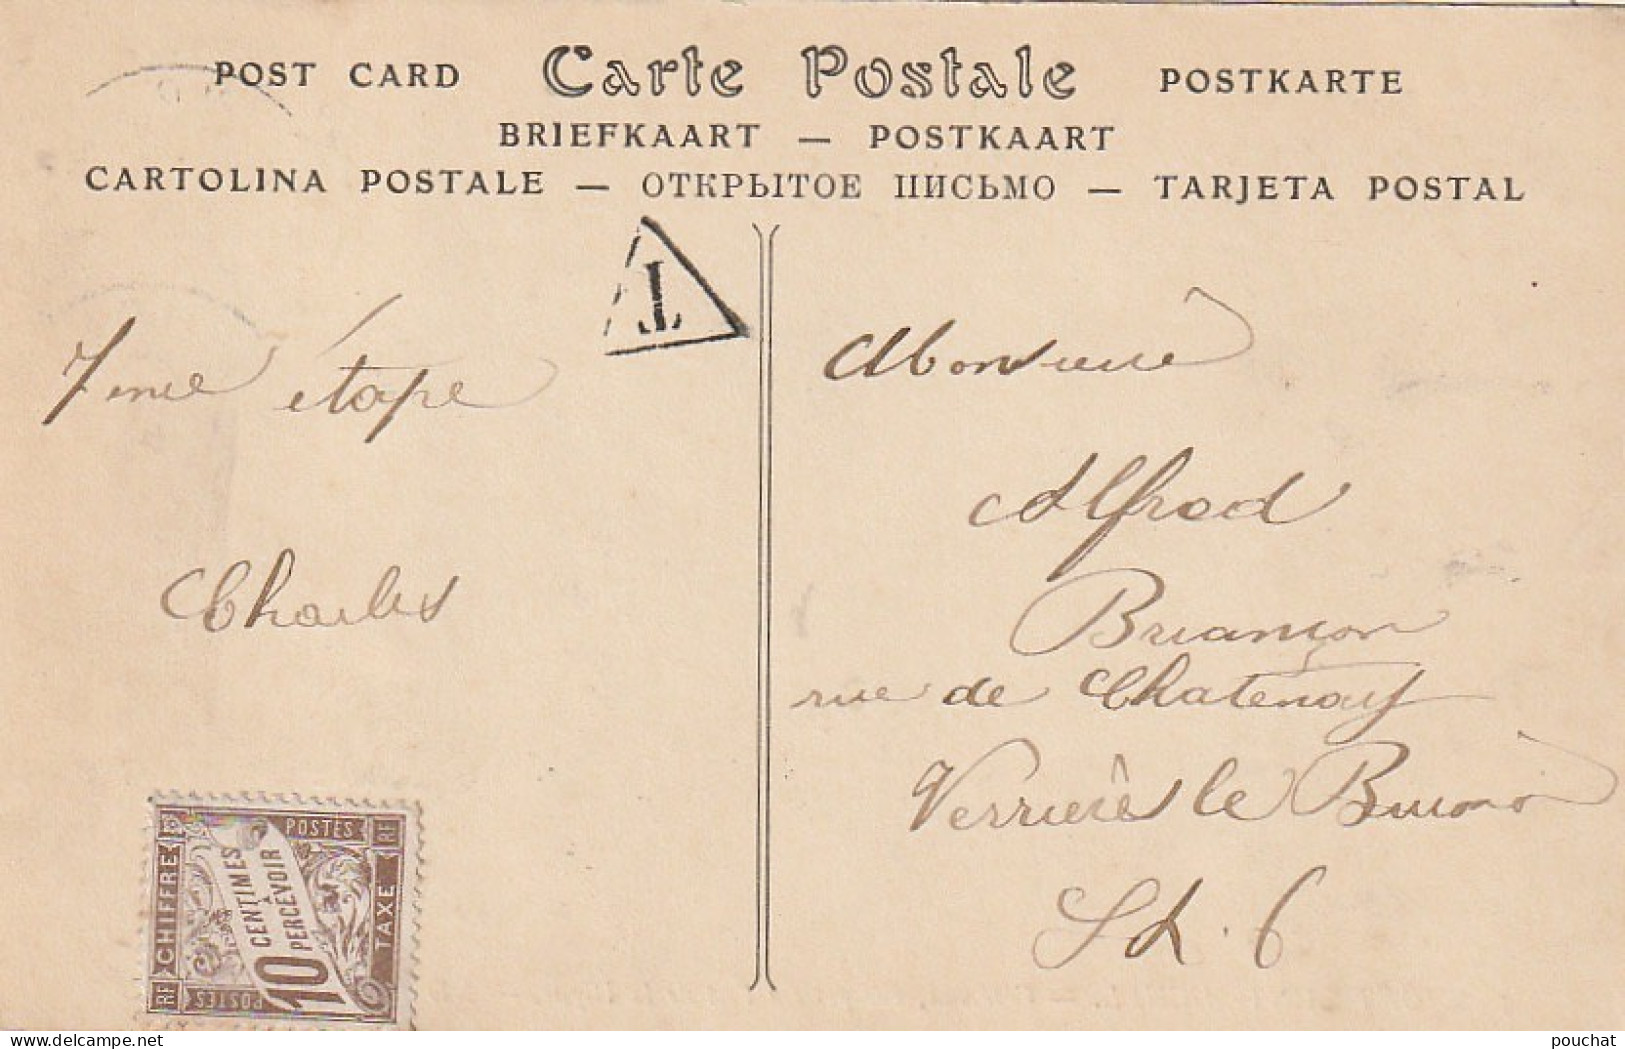 POST CARD Carte Postale POSTKARTE
BRIEFKAART — POSTKAART
CARTOLINA POSTALE — ОТКРЫТОЕ ПИСЬМО — TARJETA POSTAL
T
7me étape
Charles
Monsieur
Alfred
Briançon
rue de Chatenay
Verrières le Buisson
S & O
RF CHIFFRE
POSTES
RF TAXE
10 CENTIMES
A
PERCEVOIR
POSTES
delcampe.net
pouchat